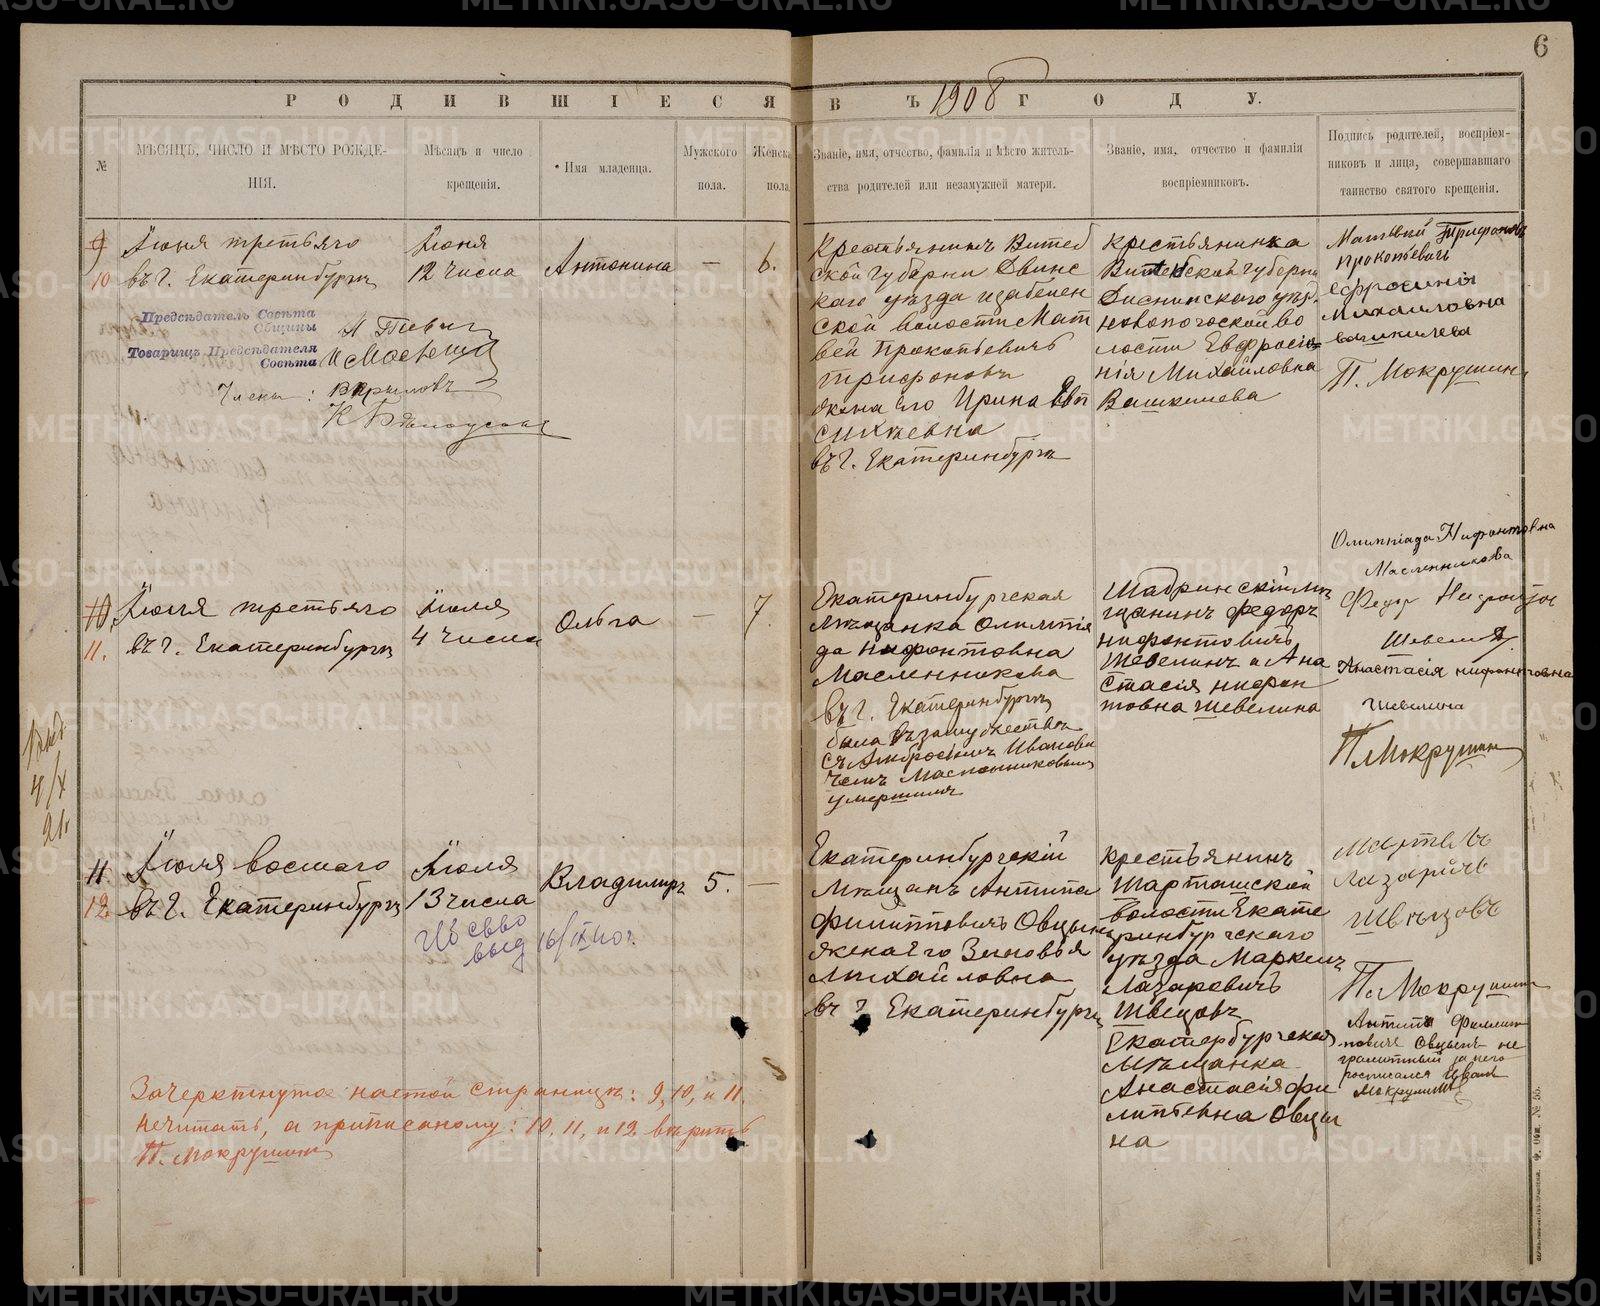 6
РОДИВШІЕСЯ ВЪ 1908 ГОДУ.
№
МѢСЯЦЪ, ЧИСЛО И МѢСТО РОЖДЕ-
НІЯ.
Мѣсяцъ и число
крещенія.
Имя младенца.
Мужского
пола.
Женск
пола
Званіе, имя, отчество, фамилія и мѣсто житель-
ства родителей или незамужней матери.
Званіе, имя, отчество и фамилія
воспріемниковъ.
Подпись родителей, воспріем-
никовъ и лица, совершавшаго
таинство святого крещенія.
9
10
Іюня третьяго
въ г. Екатеринбургѣ
Іюня
12 числа
Антонина
—
6.
Крестьянинъ Витеб
ской губерни Двинс
каго уѣзда изабелен
ской волости Мат
вей Прокопьевичъ
Трифоновъ
жена его Ирина Евп
сихѣевна
въ г. Екатеринбургѣ
Крестьянинка
Витебской губерни
новопогоской во
лости Евфроси=
нія Михайловна
Вашкилева
Матвѣй Трифоновъ
Прокопьевичъ
Ефросинія
Михаиловна
вашкилева
П. Мокрушин
Предсѣдатель Совѣта
Общины
Товарищъ Предсѣдателя
Совѣта
Члены:
10.
11.
Іюля третьяго
въ г. Екатеринбургѣ
Іюля
4 числа
Ольга
—
7.
Екатеринбургская
мѣщанка Олимпія
да Нифонтовна
Масленникова
въ г. Екатеринбургѣ
была въ замужествѣ
съ Амбросимъ Иванови
чемъ Масленниковымъ
умершимъ
Шадринскій мѣ
щанинъ Федоръ
нифонтовичъ
Шевелинъ и Ана
стасія нифон
товна Шевелина
Олимпіада Нифонтовна
Масленникова
Федор
Анастасія нифонтовна
Шевелина
П Мокрушин
11.
12.
Іюля восмаго
въ г. Екатеринбургѣ
Іюля
13 числа
Владимиръ
5.
—
выд 16/IX 40 г.
Екатеринбургскій
мѣщанъ Антипа
Филипповичъ Овцынъ
жена его Зиновья
Михайловна
въ г Екатеринбургѣ
крестьянинъ
Шарташской
волости Екате
ринбургскаго
уѣзда Маркелъ
Лазаревичъ
Швецовъ
Екатербургская
мѣщанка
Анастасія фи
липьевна Овцы
на
Швѣцовъ
П. Мокрушин
Антипъ Филлип
повичъ Овцынъ не
грамотный за него
росписался Иван
Мокрушин
Зачеркнутое на этой страницѣ: 9, 10, и 11.
нечитать, а приписаному: 10, 11, и 12. вѣрить
П. Мокрушин
METRIKI.GASO-URAL.RU